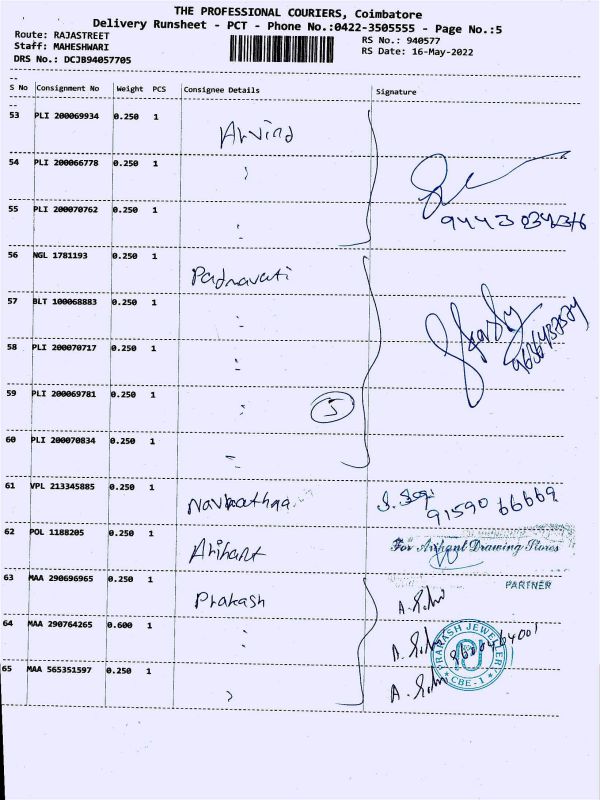 THE PROFESSIONAL COURIERS, Coimbatore
Delivery Runsheet - PCT - Phone No.:0422-3505555 - Page No.:5
Route: RAJASTREET
RS No.: 940577
Staff: MAHESHWARI
RS Date: 16-May-2022
DRS No.: DCJB94057705
S No Consignment No Weight PCS Consignee Details Signature
53 PLI 200069934 0.250 1 Arvind
54 PLI 200066778 0.250 1
55 PLI 200070762 0.250 1
56 NGL 1781193 0.250 1 Padmavati
57 BLT 100068883 0.250 1
58 PLI 200070717 0.250 1
59 PLI 200069781 0.250 1 5
60 PLI 200070834 0.250 1
61 VPL 213345885 0.250 1
91590 66669
62 POL 1188205 0.250 1 Arihant For Arihant Drawing Stores
PARTNER
63 MAA 290696965 0.250 1 Prakash
64 MAA 290764265 0.600 1
PRAKASH JEWELLERY
CBE-1
65 MAA 565351597 0.250 1